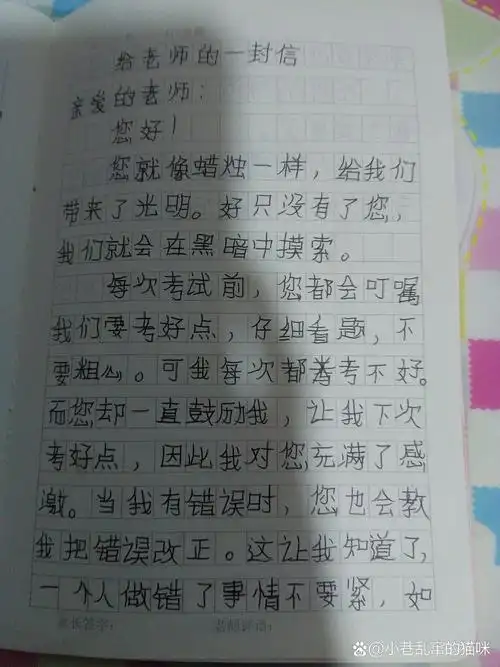 给老师的一封信
亲爱的老师：
您好！
您就像蜡烛一样，给我们
带来了光明。好只没有了您，
我们就会在黑暗中摸索。
每次考试前，您都会叮嘱
我们要考好点，仔细看题，不
要粗心。可我每次都考不好。
而您却一直鼓励我，让我下次
考好点，因此我对您充满了感
激。当我有错误时，您也会教
我把错误改正。这让我知道了，
一个人做错了事情不要紧，如
家长签字： 老师评语：
@小巷乱窜的猫咪